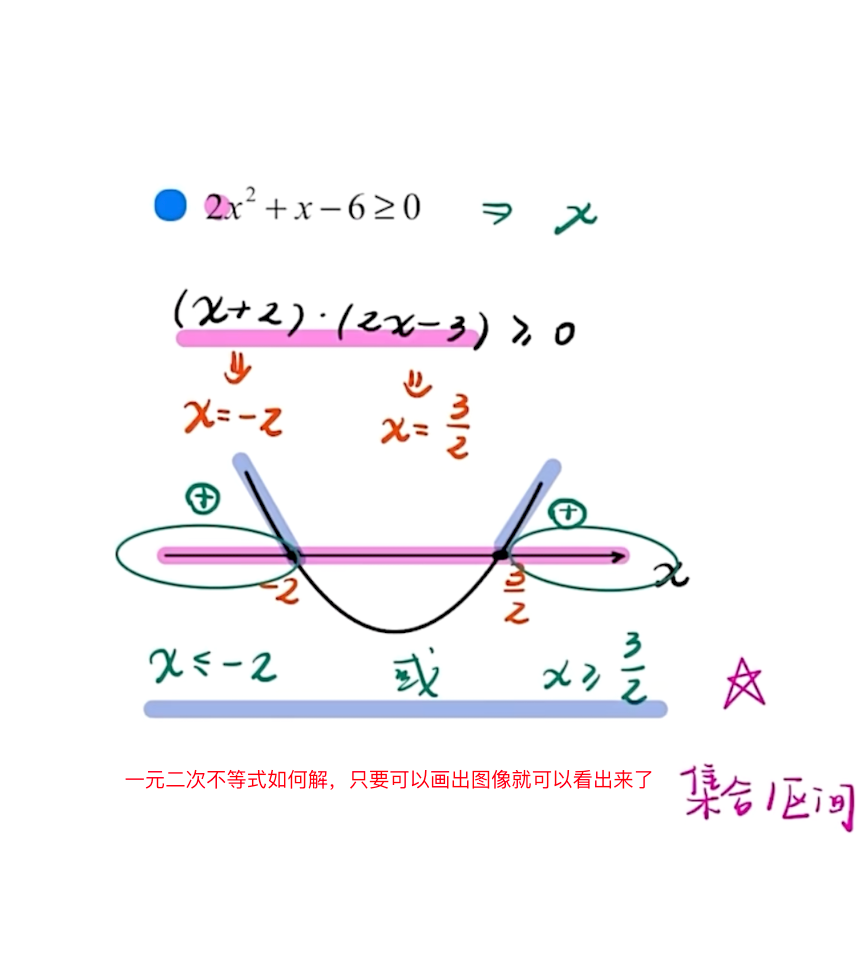 2x² + x − 6 ≥ 0 ⇒ x
(x+2)·(2x−3) ≥ 0
⇓ ⇓
x=−2 x=3/2
⊕ ⊕
x
−2 3/2
x≤−2 或 x≥3/2
一元二次不等式如何解，只要可以画出图像就可以看出来了
集合/区间